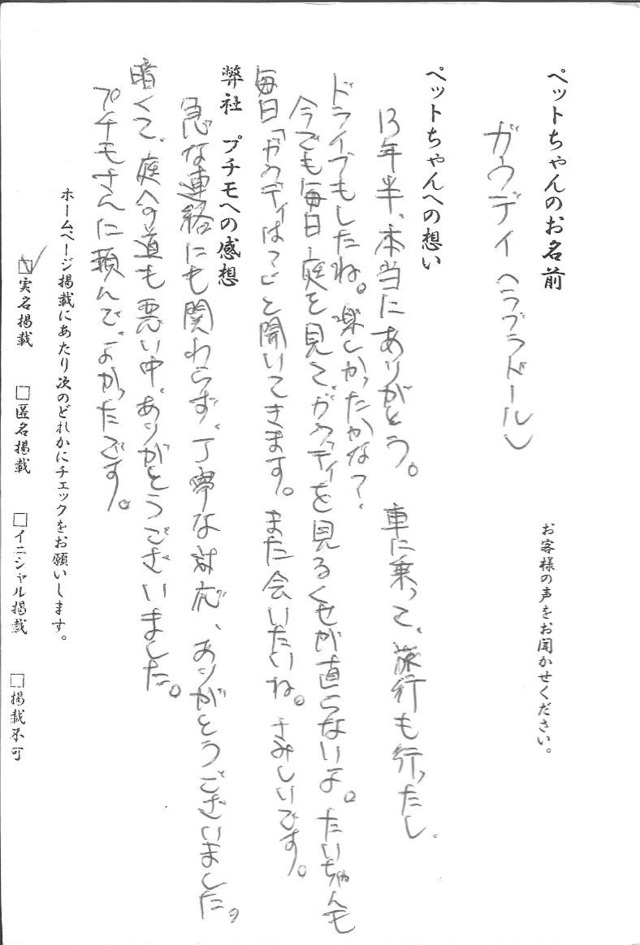 お客様の声をお聞かせください。
ペットちゃんのお名前
ガウディ(ラブラドール)
ペットちゃんへの想い
13年半、本当にありがとう。車に乗って、旅行も行ったし
ドライブもしたね。楽しかったかな?
今でも毎日庭を見て、ガウディを見るくせが直らないよ。たいちゃんも
毎日「ガウディは?」と聞いてきます。また会いたいね。さみしいです。
弊社 プチモへの感想
急な連絡にも関わらず、丁寧な対応、ありがとうございました。
暗くて、庭への道も悪い中、ありがとうございました。
プチモさんに頼んで、よかったです。
ホームページ掲載にあたり次のどれかにチェックをお願いします。
☑実名掲載 □匿名掲載 □イニシャル掲載 □掲載不可